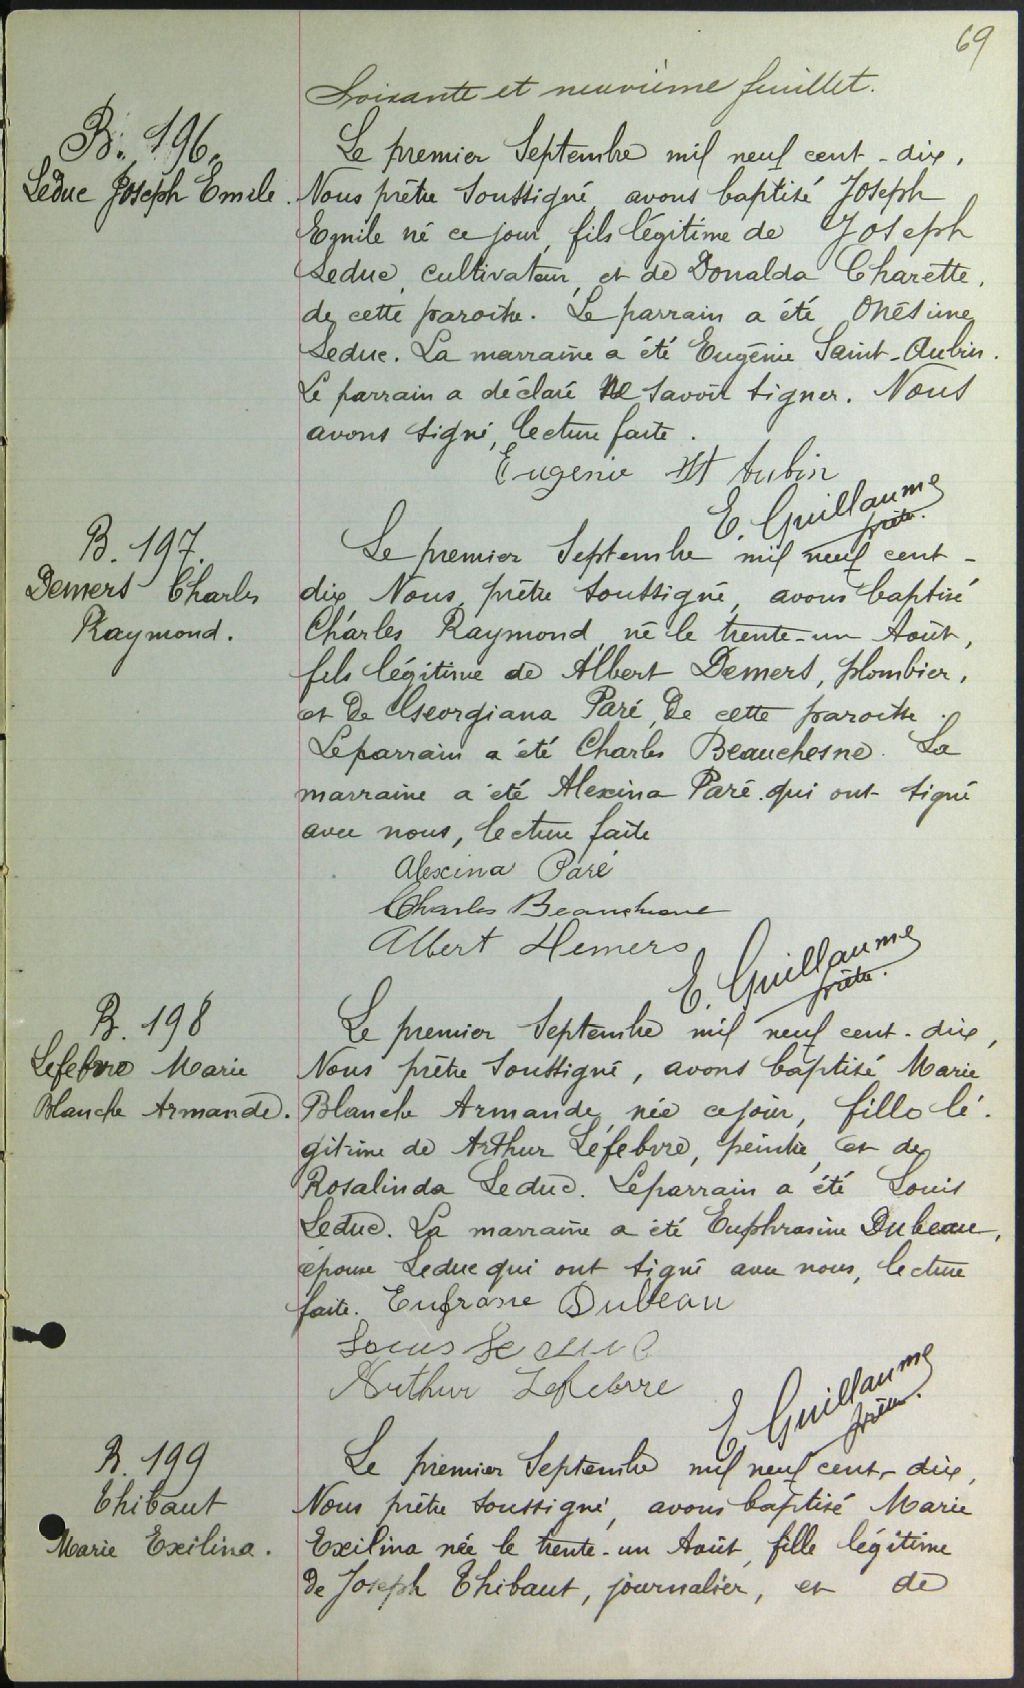 69
Soixante et neuvième feuillet.
B. 196.
Leduc Joseph Emile.
Le premier Septembre mil neuf cent-dix,
Nous prêtre soussigné avons baptisé Joseph
Emile né ce jour, fils légitime de Joseph
Leduc, cultivateur, et de Donalda Charette,
de cette paroisse. Le parrain a été Onésime
Leduc. La marraine a été Eugénie Saint-Aubin.
Le parrain a déclaré ne savoir signer. Nous
avons signé, lecture faite.
Eugenie St Aubin
E. Guillaume
prêtre.
B. 197.
Demers Charles
Raymond.
Le premier Septembre mil neuf cent-
dix Nous, prêtre soussigné, avons baptisé
Charles Raymond, né le trente-un Août,
fils légitime de Albert Demers, plombier,
et de Georgiana Paré, de cette paroisse.
Le parrain a été Charles Beauchesne. La
marraine a été Alexina Paré qui ont signé
avec nous, lecture faite
Alexina Paré
Charles Beauchesne
Albert Demers
E. Guillaume
prêtre.
B. 198
Lefebvre Marie
Blanche Armande.
Le premier Septembre mil neuf cent-dix,
Nous prêtre soussigné, avons baptisé Marie
Blanche Armande, née ce jour, fille lé-
gitime de Arthur Léfebvre, peintre, et de
Rosalinda Leduc. Le parrain a été Louis
Leduc. La marraine a été Euphrasine Dubeau,
épouse Leduc qui ont signé avec nous, lecture
faite. Eufrasie Dubeau
Louis Leduc
Arthur Lefebvre
E. Guillaume
prêtre.
B. 199
Thibaut
Marie Exilina.
Le premier Septembre mil neuf cent-dix,
Nous prêtre soussigné, avons baptisé Marie
Exilina née le trente-un Août, fille légitime
de Joseph Thibaut, journalier, et de